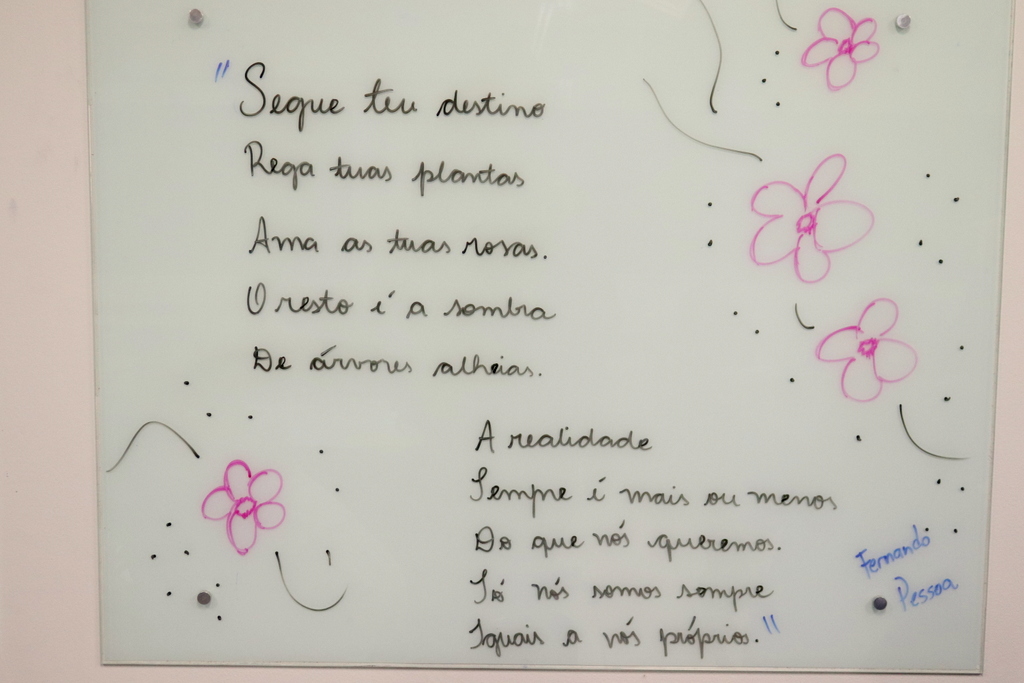 "Segue teu destino
Rega tuas plantas
Ama as tuas rosas.
O resto é a sombra
De árvores alheias.
A realidade
Sempre é mais ou menos
Do que nós queremos.
Só nós somos sempre
Iguais a nós próprios."
Fernando
Pessoa